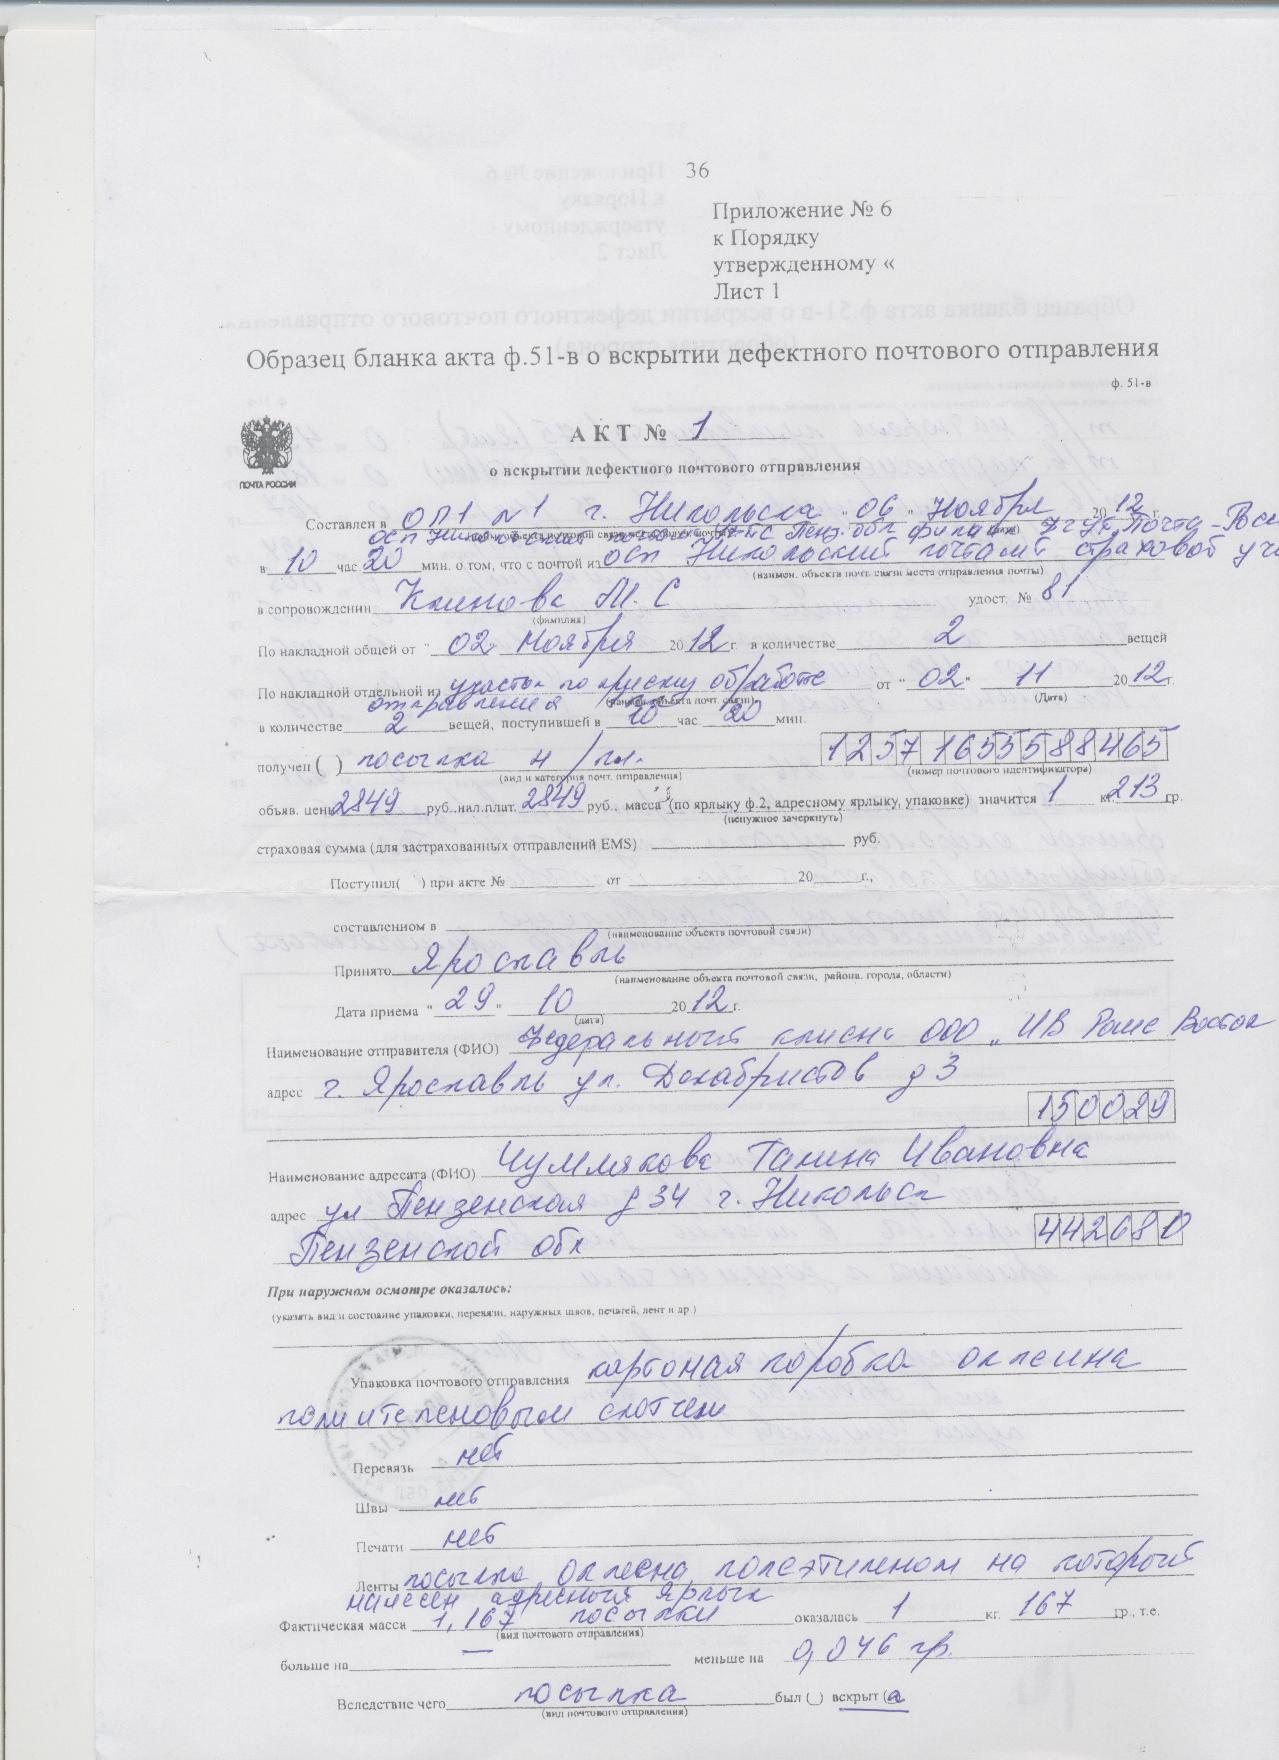 36
Приложение № 6
к Порядку
утвержденному «
Лист 1
Образец бланка акта ф.51-в о вскрытии дефектного почтового отправления
ф. 51-в
ПОЧТА РОССИИ
АКТ № 1
о вскрытии дефектного почтового отправления
Составлен в ОПС №1 г. Никольска "06" Ноября 2012 г.
осп Никольский почтамт Пенз. обл филиал ФГУП Почта
в 10 час 20 мин. о том, что с почтой из осп Никольский почтамт страховой
(наимен. объекта почт. связи места отправления почты)
в сопровождении Климова М. С удост. № 81
(фамилия)
По накладной общей от "02" Ноября 2012 г. в количестве 2 вещей
По накладной отдельной из участок по приему обработке от "02" 11 2012 г.
отправления (наимен. объекта почт. связи) (Дата)
в количестве 2 вещей, поступившей в 10 час 20 мин.
получен ( ) посылка н/пл. 12571655588465
(вид и категория почт. отправления) (номер почтового идентификатора)
объяв. цен. 2849 руб., нал.плат. 2849 руб., масса (по ярлыку ф.2, адресному ярлыку, упаковке) значится 1 кг. 213 гр.
(ненужное зачеркнуть)
страховая сумма (для застрахованных отправлений EMS) руб.
Поступил( ) при акте № от 20 г.,
составленном в
(наименование объекта почтовой связи)
Принято Ярославль
(наименование объекта почтовой связи, района, города, области)
Дата приема "29" 10 2012 г.
(дата)
Наименование отправителя (ФИО) Федеральный клиент ООО „ ИВ Роше Восток
адрес г. Ярославль ул. Декабристов д 3
150029
Наименование адресата (ФИО) Чумлякова Галина Ивановна
адрес ул Пензенская д 34 г. Никольск
Пензенской обл 442680
При наружном осмотре оказалось:
(указать вид и состояние упаковки, перевязи, наружных швов, печатей, лент и др.)
Упаковка почтового отправления картоная коробка оклеина
полиителеновым скотчем
Перевязь нет
Швы нет
Печати нет
Ленты посылка оклеена полеэтиленом на которой
нанесен адресный ярлык
Фактическая масса 1,167 посылки оказалась 1 кг. 167 гр., т.е.
(вид почтового отправления)
больше на — меньше на 0,046 гр.
Вследствие чего посылка был ( ) вскрыт (а
(вид почтового отправления)